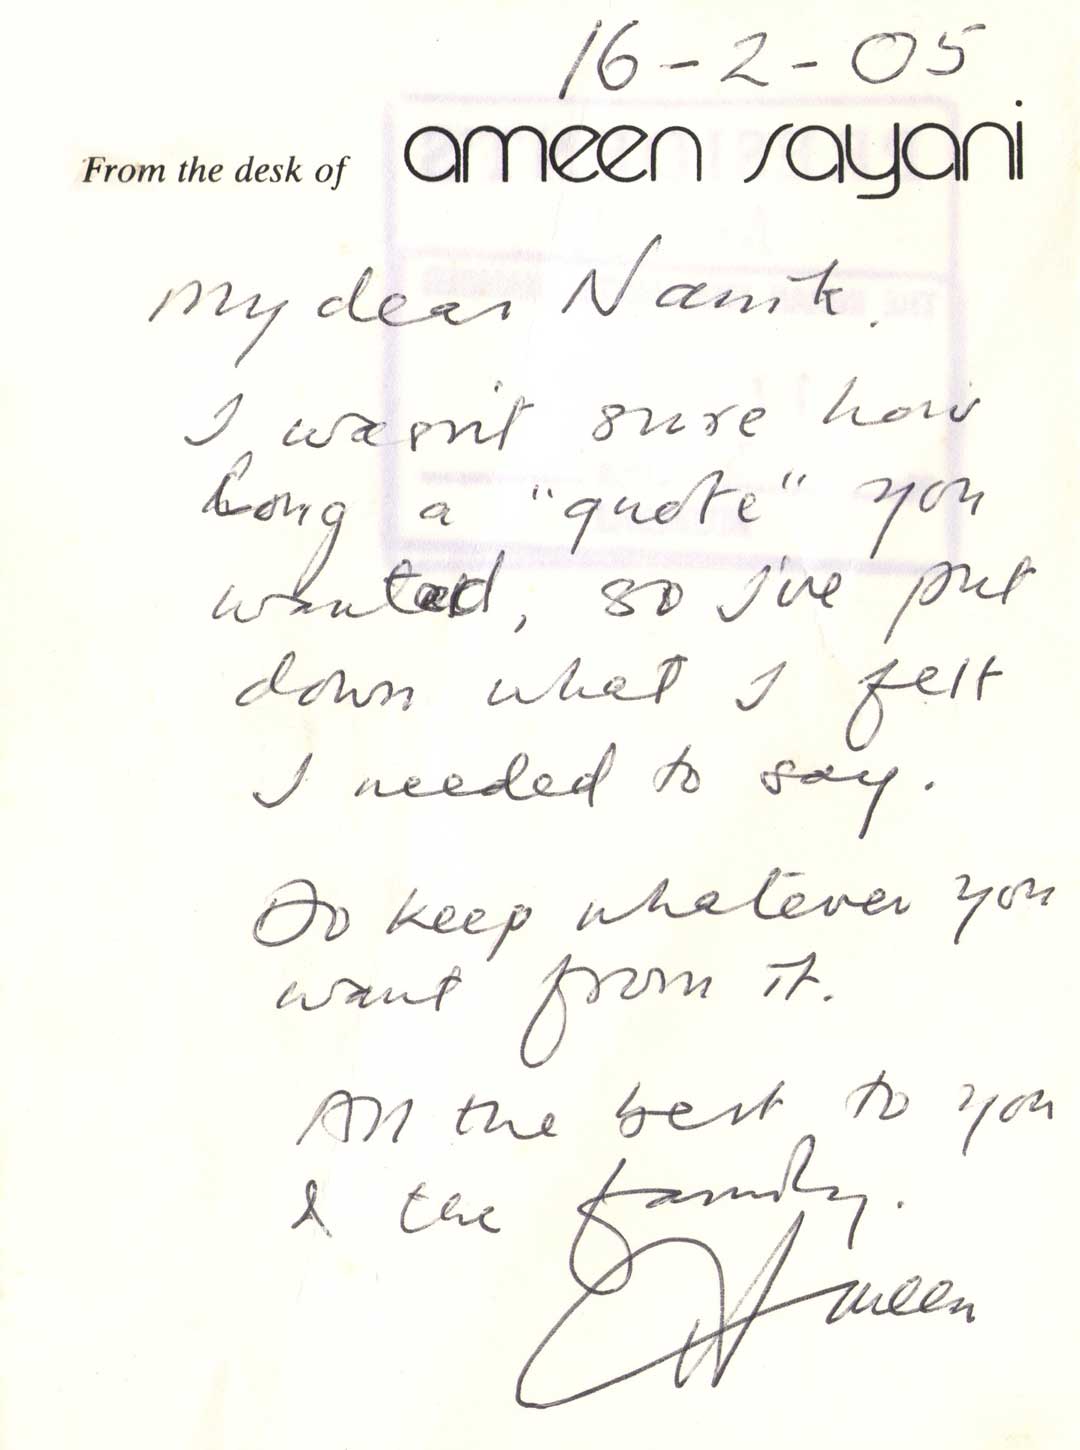 16-2-05
From the desk of ameen sayani
My dear Nanik.
I wasn't sure how
long a "quote" you
wanted, so I've put
down what I felt
I needed to say.
Do keep whatever you
want from it.
All the best to you
& the family.
Ameen